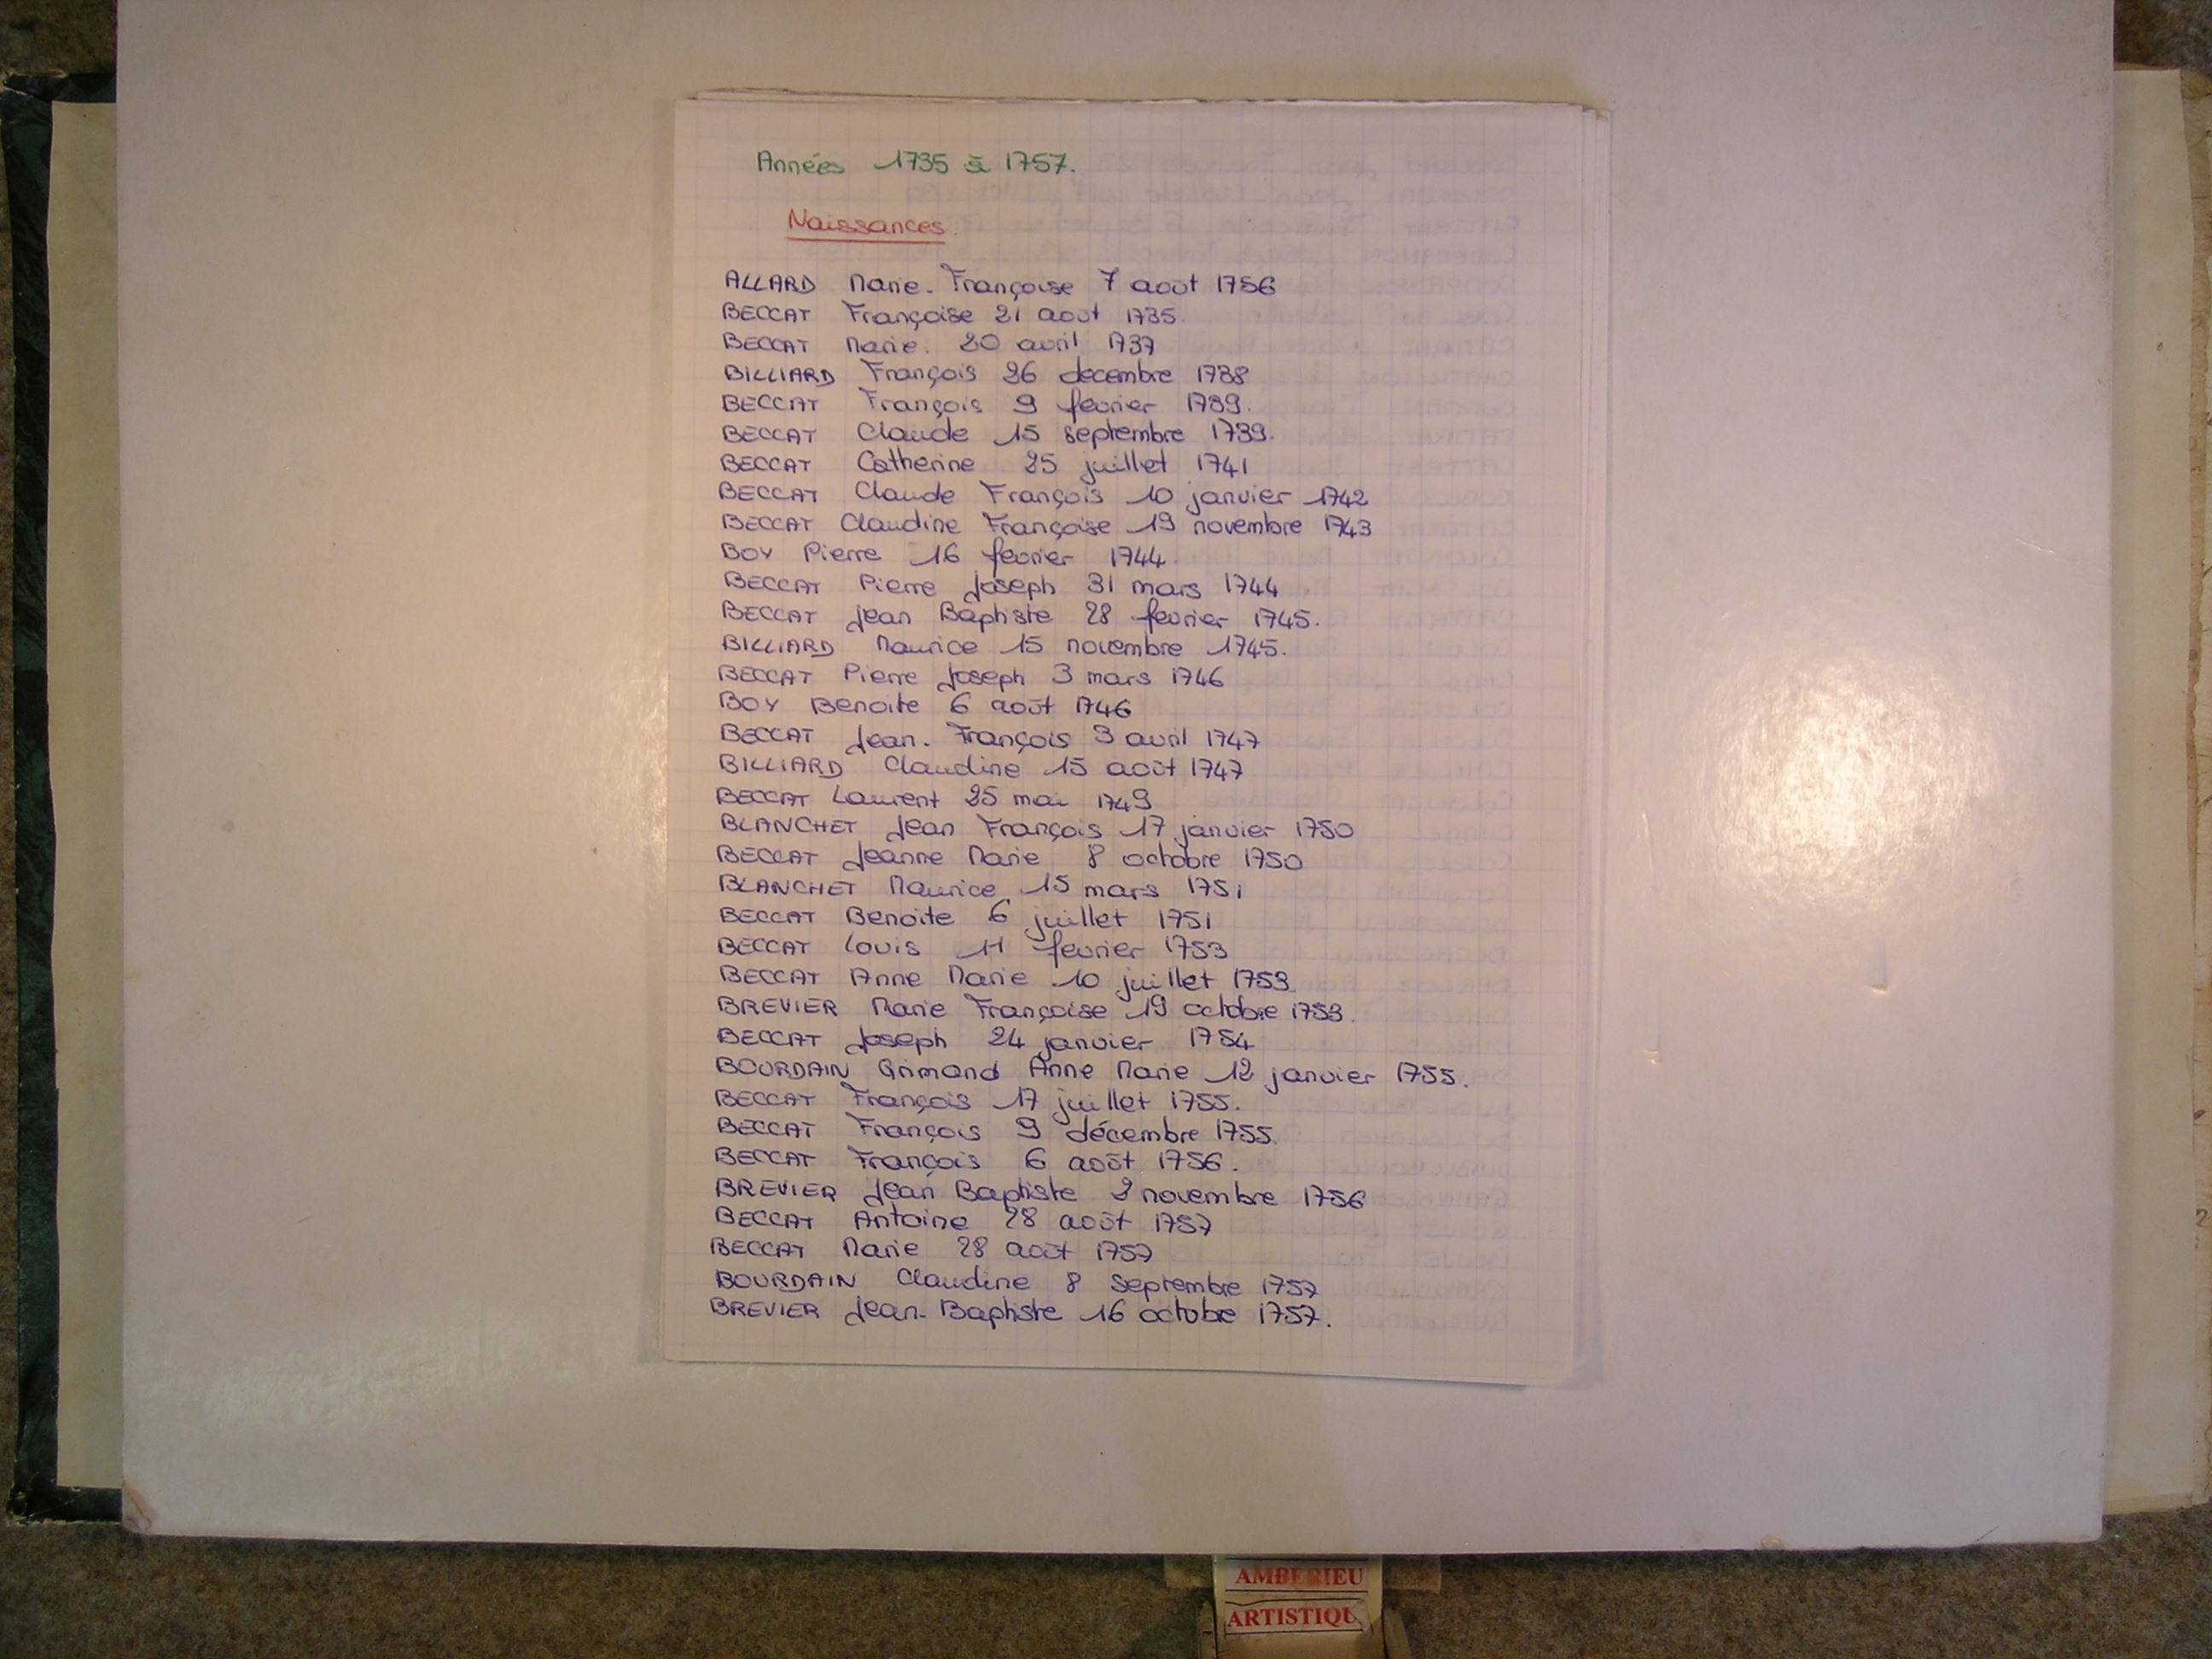 Années 1735 à 1757.
Naissances.
ALLARD Marie-Françoise 7 août 1756
BECCAT Françoise 21 août 1735.
BECCAT Marie. 20 avril 1737
BILLIARD François 26 decembre 1738
BECCAT François 9 février 1739.
BECCAT Claude 15 septembre 1739.
BECCAT Catherine 25 juillet 1741
BECCAT Claude François 10 janvier 1742
BECCAT Claudine Françoise 19 novembre 1743
BOY Pierre 16 février 1744.
BECCAT Pierre Joseph 31 mars 1744
BECCAT Jean Baptiste 28 fevrier 1745.
BILLIARD Maurice 15 novembre 1745.
BECCAT Pierre Joseph 3 mars 1746
BOY Benoite 6 août 1746
BECCAT Jean-François 3 avril 1747
BILLIARD Claudine 15 août 1747
BECCAT Laurent 25 mai 1749
BLANCHET Jean François 17 janvier 1750
BECCAT Jeanne Marie 8 octobre 1750
BLANCHET Maurice 15 mars 1751
BECCAT Benoite 6 juillet 1751
BECCAT Louis 11 fevrier 1753
BECCAT Anne Marie 10 juillet 1753.
BREVIER Marie Françoise 19 octobre 1753.
BECCAT Joseph 24 janvier 1754
BOURDAIN Grimand Anne Marie 12 janvier 1755.
BECCAT François 17 juillet 1755.
BECCAT François 9 décembre 1755.
BECCAT François 6 août 1756.
BREVIER Jean Baptiste 2 novembre 1756
BECCAT Antoine 28 août 1757
BECCAT Marie 28 août 1757
BOURDAIN Claudine 8 septembre 1757
BREVIER Jean-Baptiste 16 octobre 1757.
AMBERIEU
ARTISTIQU